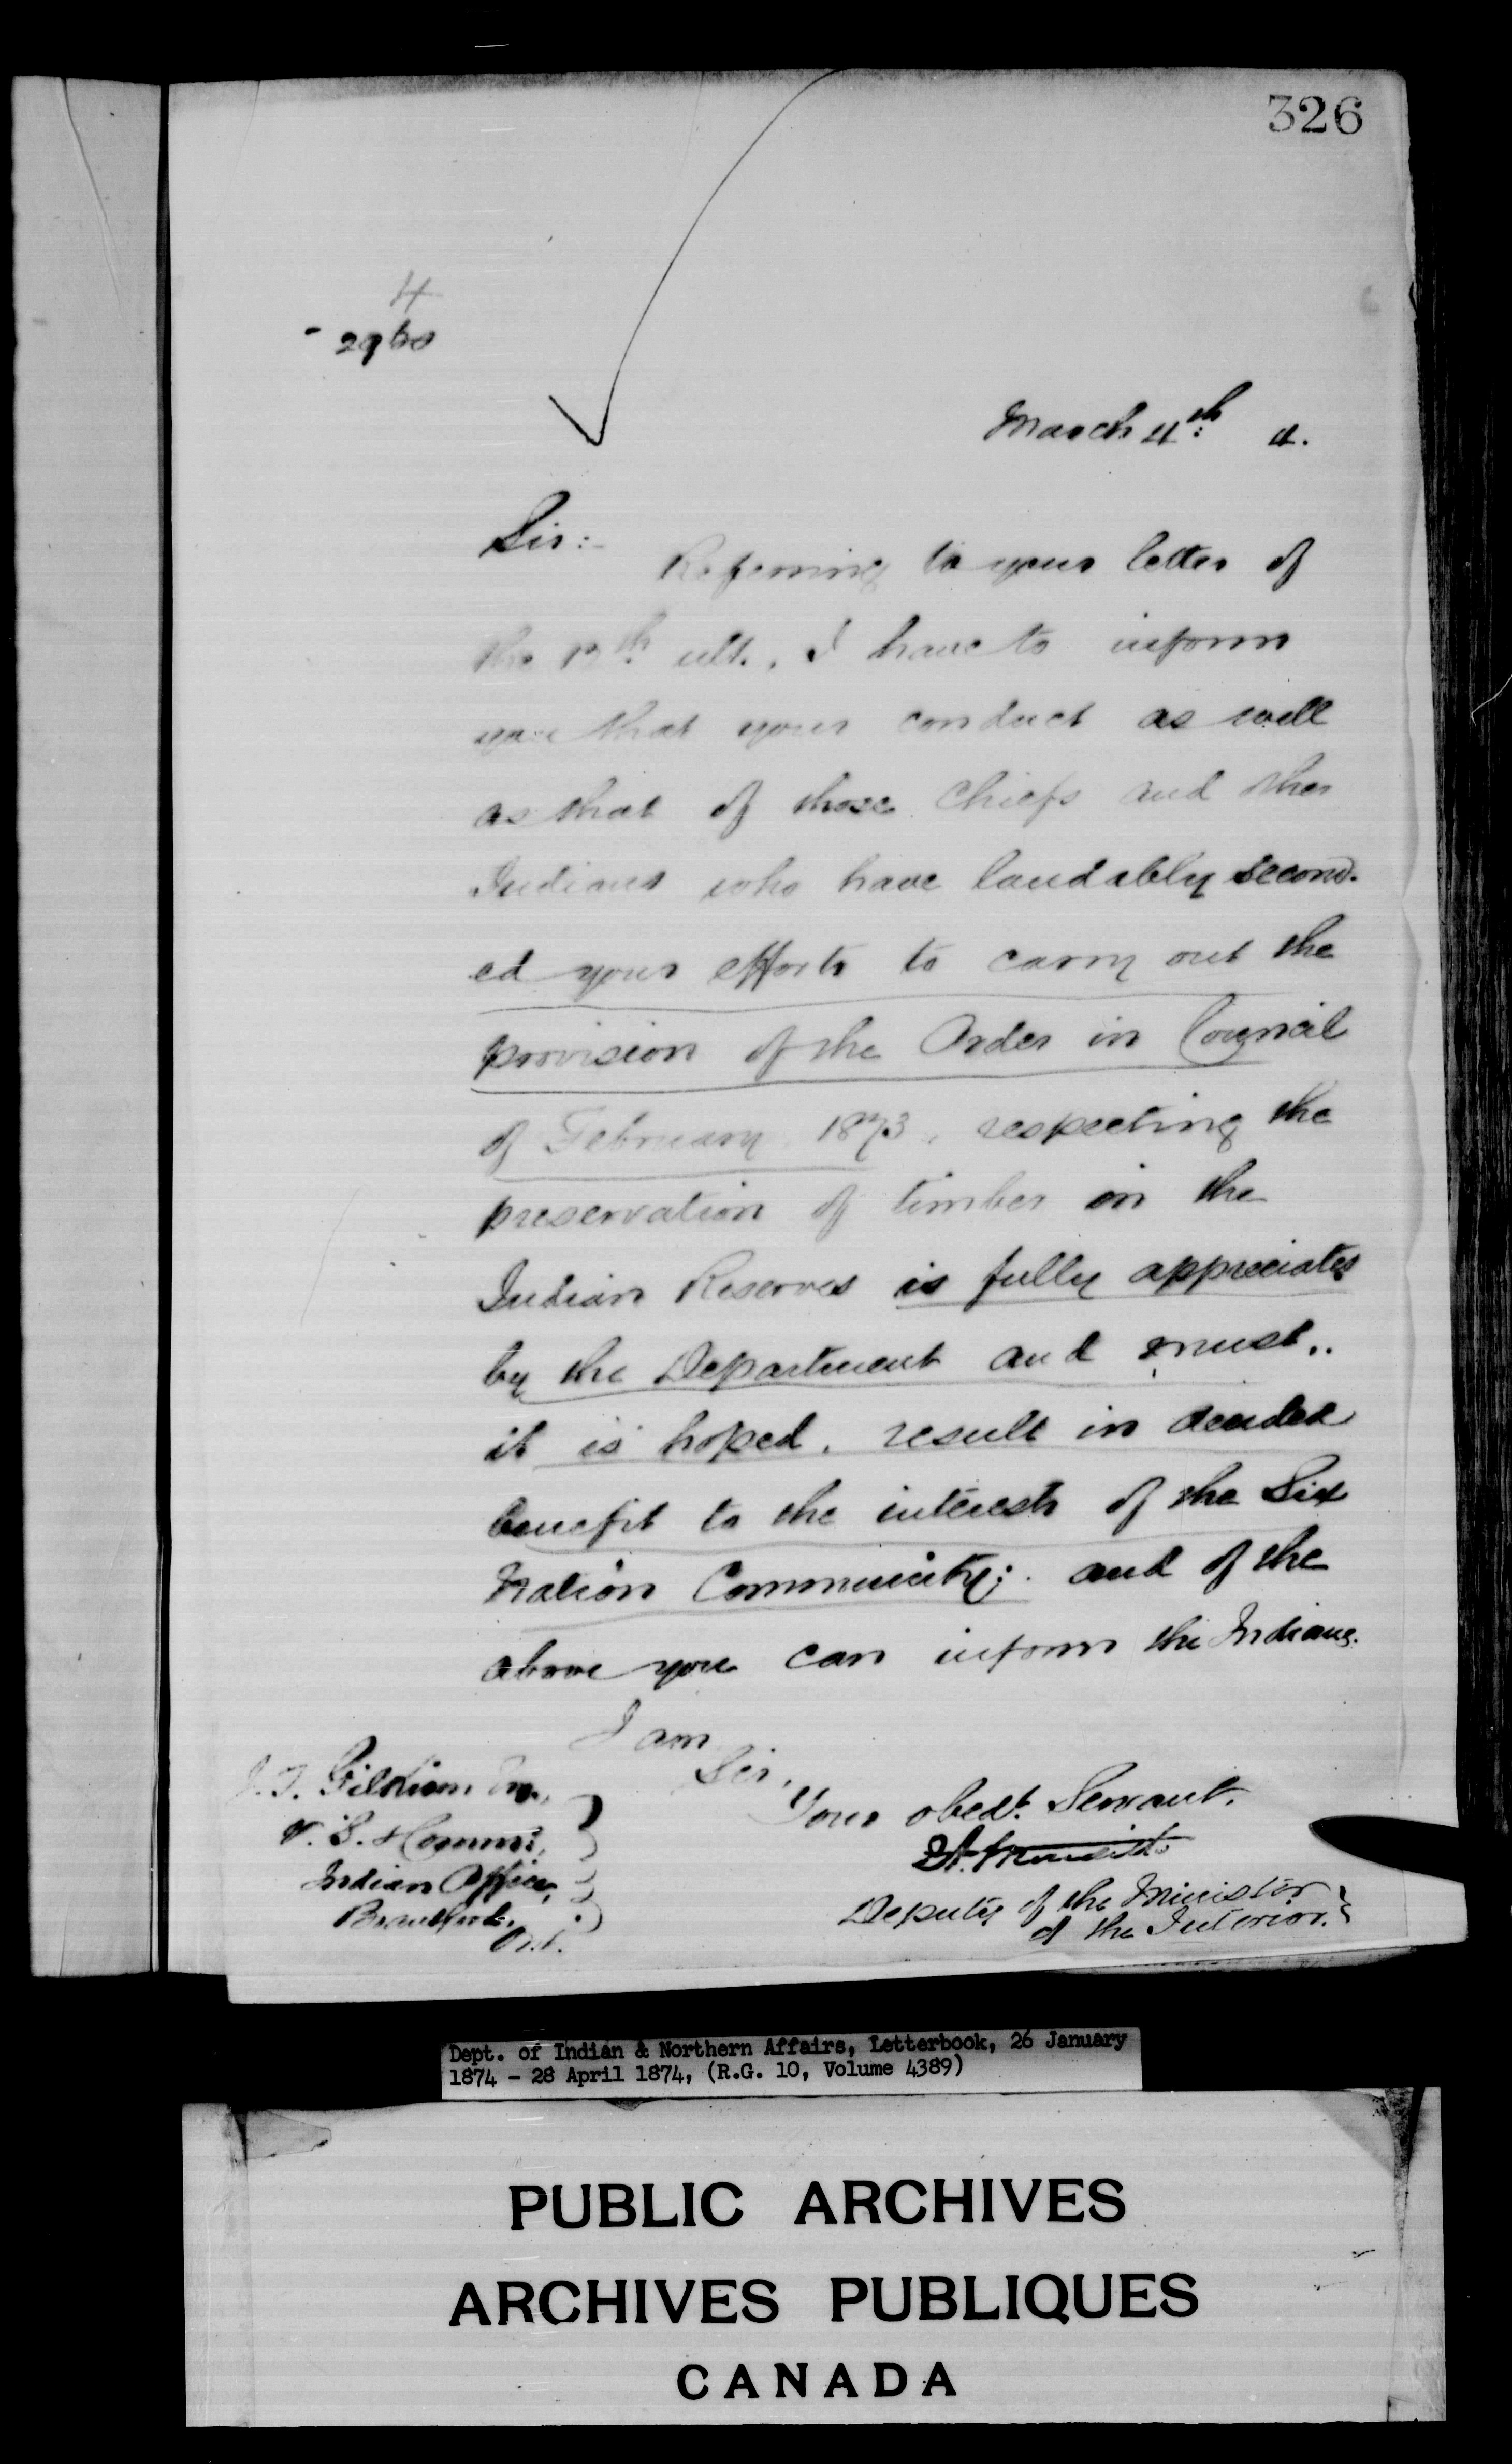 326
4
2960
March 4th: 4.
Sir:-
Referring to your letter of
the 12th ult., I have to inform
you that your conduct as well
as that of those Chiefs and other
Indians who have laudably second-
ed your efforts to carry out the
provision of the Order in Council
of February 1873, respecting the
preservation of timber on the
Indian Reserves is fully appreciated
by the Department and must,
it is hoped, result in decided
benefit to the interests of the Six
Nation Community; and of the
above you can inform the Indians.
I am
Sir,
Your obedt. Servant.
Deputy of the Minister
of the Interior.
J. T. Gilkison Esq.,
V. S. & Commr.,
Indian Office,
Brantford,
Ont.
Dept. of Indian & Northern Affairs, Letterbook, 26 January
1874 - 28 April 1874, (R.G. 10, Volume 4389)
PUBLIC ARCHIVES
ARCHIVES PUBLIQUES
CANADA